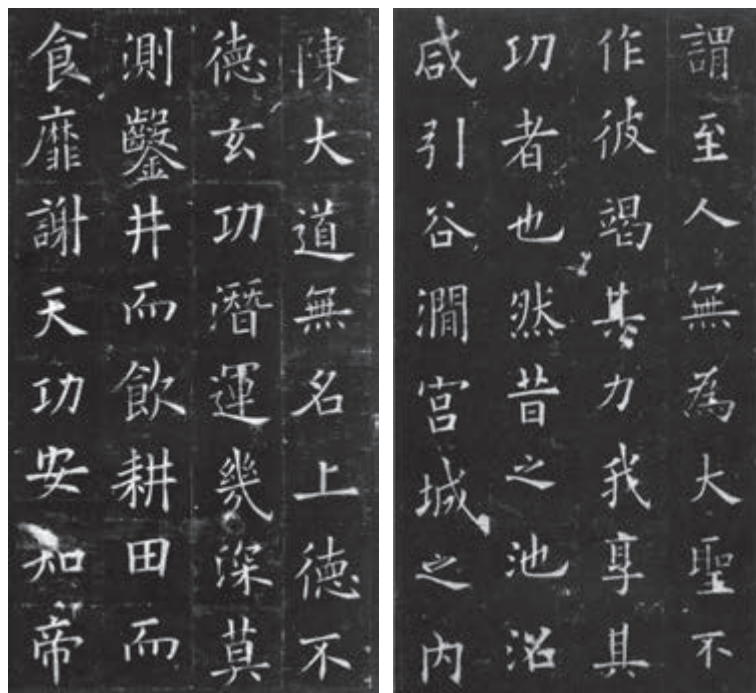 謂至人無為大聖不
作彼竭其力我享其
功者也然昔之池沼
咸引谷澗宫城之内
陳大道無名上德不
德玄功潛運幾深莫
測鑿井而飲耕田而
食靡謝天功安知帝